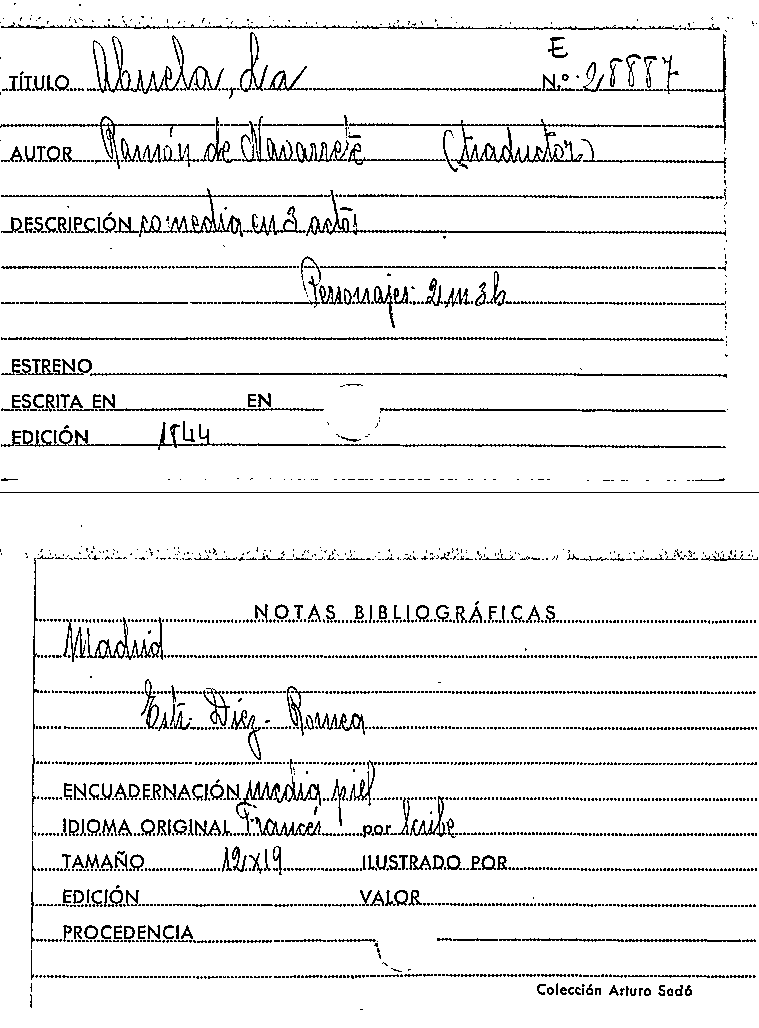 E
TÍTULO Abuela, La Nº 28887
AUTOR Ramón de Navarrete (traductor)
DESCRIPCIÓN comedia en 3 actos
Personajes: 2 m 3 h
ESTRENO
ESCRITA EN EN
EDICIÓN 1844
NOTAS BIBLIOGRÁFICAS
Madrid
Estr. Díez - Romea
ENCUADERNACIÓN media piel
IDIOMA ORIGINAL Francés por Scribe
TAMAÑO 12x19 ILUSTRADO POR
EDICIÓN VALOR
PROCEDENCIA
Colección Arturo Sedó